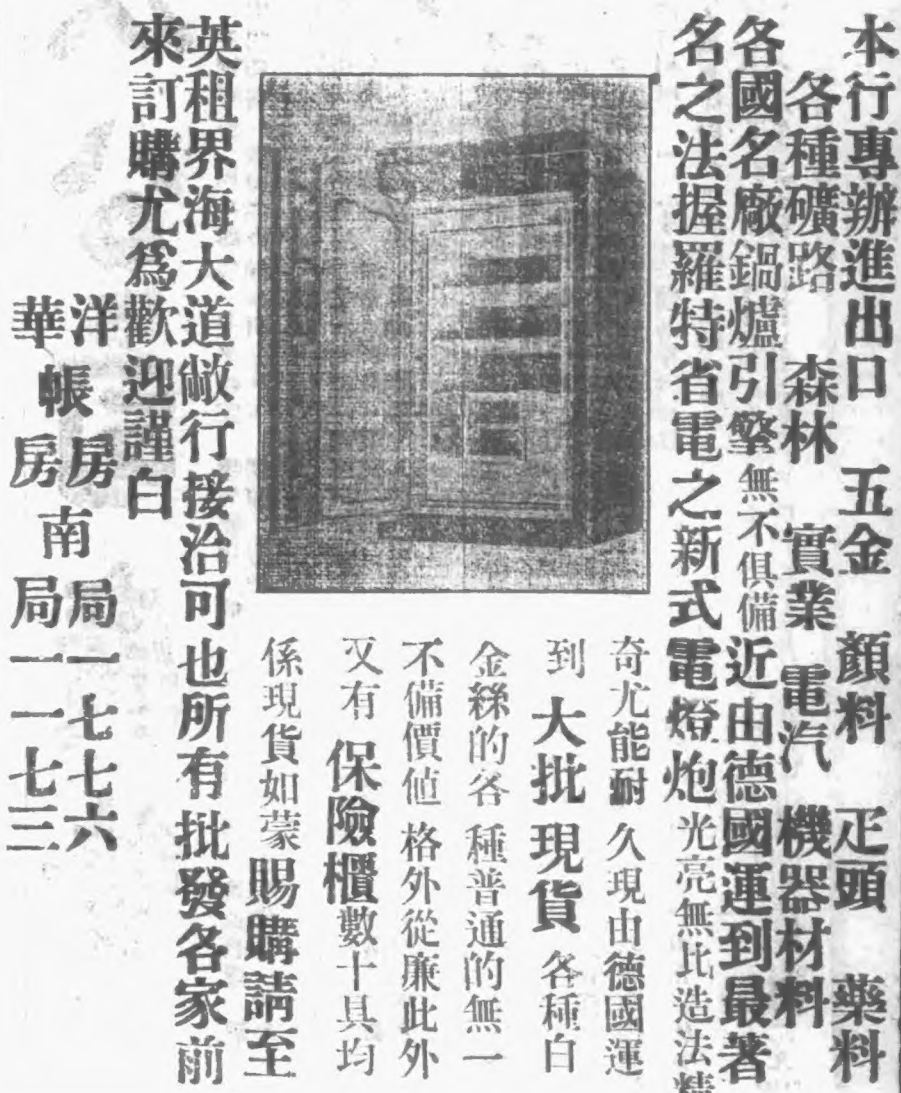 本行專辦進出口 五金 顏料 疋頭 藥料
各種礦路 森林 實業 電汽 機器材料
各國名廠鍋爐引擎無不俱備近由德國運到最著
名之法握羅特省電之新式電燈炮光亮無比造法精
奇尤能耐久現由德國運
到大批現貨各種白
金絲的各種普通的無一
不備價值格外從廉此外
又有保險櫃數十具均
係現貨如蒙賜購請至
英租界海大道敝行接洽可也所有批發各家前
來訂購尤為歡迎謹白
洋帳房南局一七七六
華帳房南局一一七三